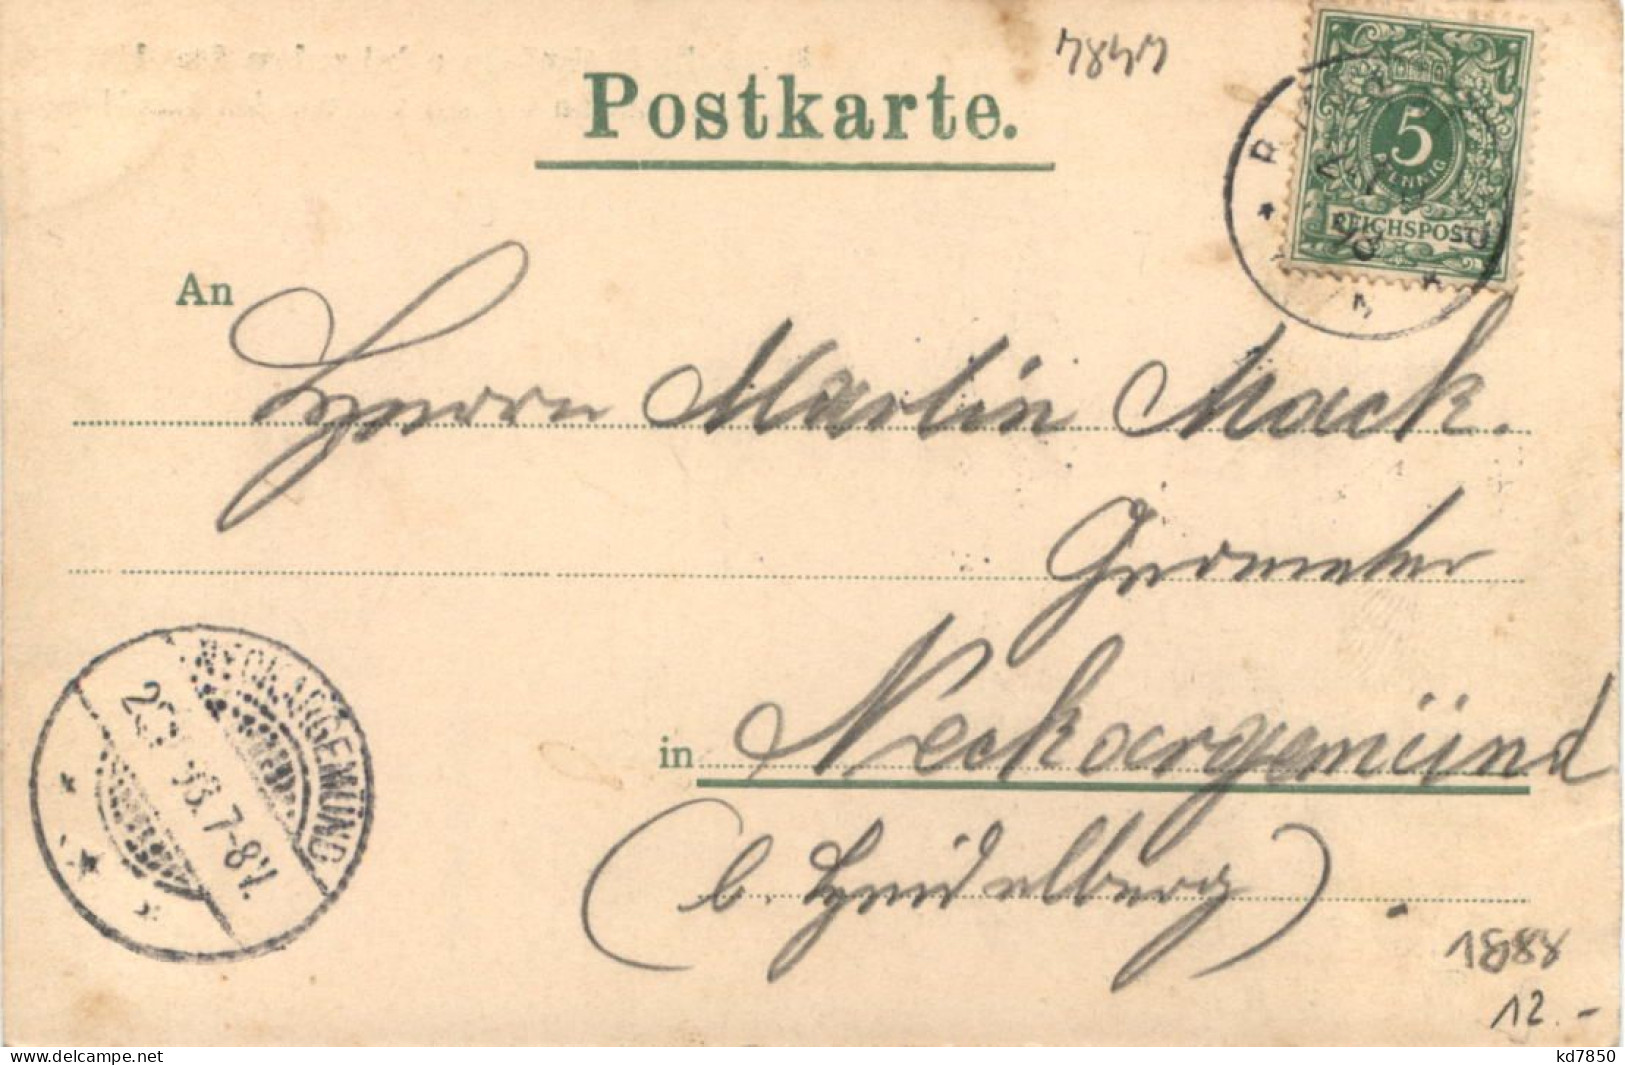 7847
Postkarte.
5
PFENNIG
REICHSPOST
An
Herrn Martin Mack.
Geometer
in Neckargemünd
(b. Heidelberg)
NECKARGEMÜND
7-8V.
1888
12.-
www.delcampe.net
kd7850